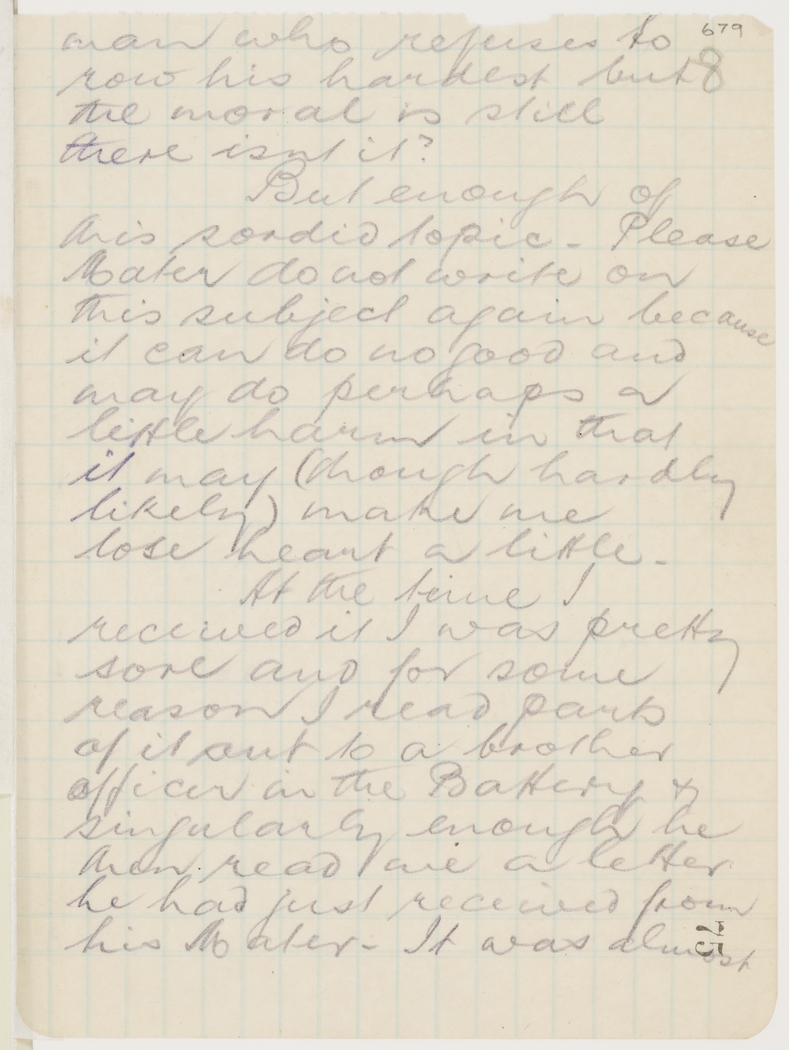 679
man who refuses to
row his hardest but 8
the moral is still
there isnt it?
But enough of
this sordid topic - Please
Mater do not write on
this subject again because
it can do no good and
may do perhaps a
little harm in that
it may (though hardly
likely) make me
lose heart a little -
At the time I
received it I was pretty
sore and for some
reason I read parts
of it out to a brother
officer in the Battery &
singularly enough he
then read me a letter
he had just received from
his Mater - It was almost
75